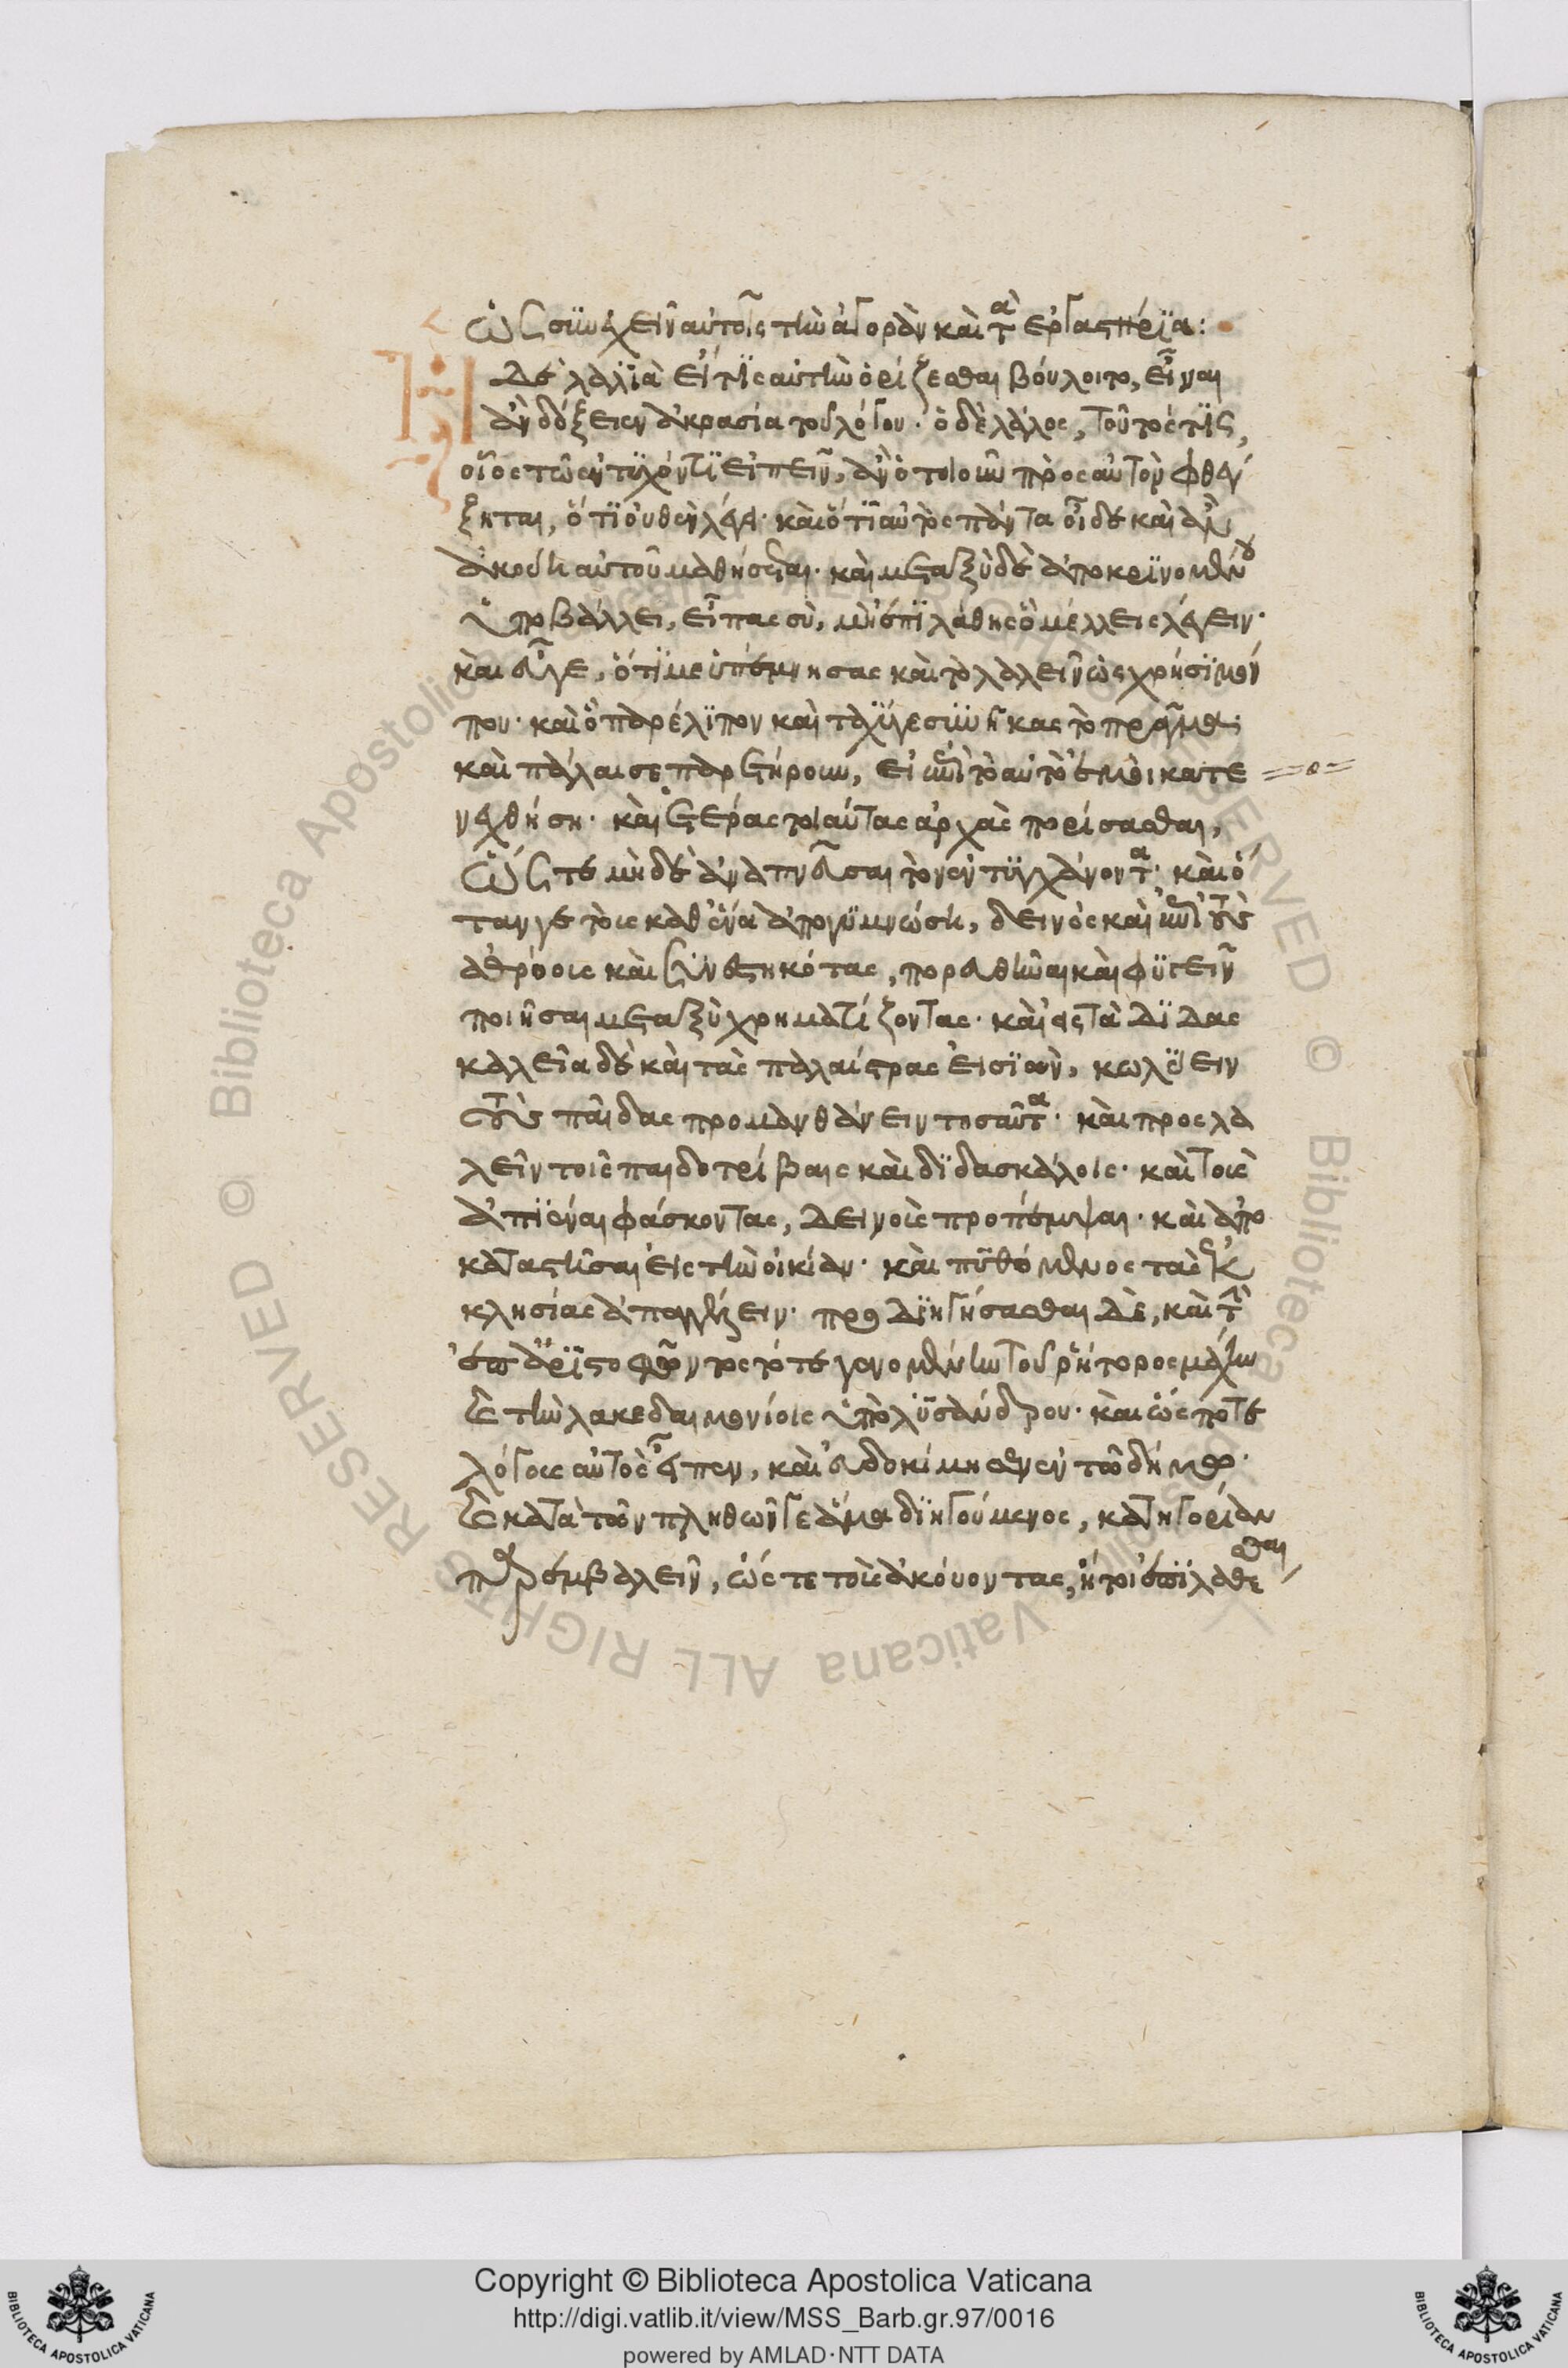 ὡς συνέχειν αὐτοῖς τὴν ἀγορὰν καὶ τὰ ἐργαστήρϊα:
Ἡ δὲ λαλϊὰ εἴ τϊς αὐτὴν ὁρίζεσθαι βούλοιτο, εἶναι
ἂν δόξειεν ἀκρασία τοῦ λόγου· ὁ δὲ λάλος, τοῦτός τϊς,
οἷος τῶ ἐντϋχόντϊ εἰπεῖν, ἂν ὁτιοῦν πρὸς αὐτὸν φθέγ
ξηται, ὅτϊ οὐθὲν λέγει· καὶ ὅτϊ αὐτὸς πάντα οἶδε καὶ ἂν
ἀκούη αὐτοῦ μαθήσεται· καὶ μεταξὺ δὲ ἀποκρϊνομένου
ὑποβάλλει, εἶπας σὺ, μὴ ἐπϊλάθης ὃ μέλλεις λέγειν·
καὶ εὖγε, ὅτϊ με ὑπέμνησας καὶ τὸ λαλεῖν ὡς χρήσϊμόν
που· καὶ ὃ παρέλϊπον καὶ ταχϋγε συνῆκας τὸ πρᾶγμα·
καὶ πάλαι σε παρετήρουν, εἰ ἐπὶ τὸ αὐτὸ ἐμοὶ κατε
νεχθήση· καὶ ἑτέρας τοιαύτας ἀρχὰς πορίσασθαι,
ὥς τε μὴ δὲ ἀναπνεῦσαι τὸν ἐντϋγχάνοντα· καὶ ὅ
ταν γε τοὶς καθ' ἕνα ἀπογϋμνώση, δεινὸς καὶ ἐπὶ τοὺς
ἀθρόοις καὶ συνεστηκότας, πορευθῆναι καὶ φϋγεῖν
ποιῆσαι μεταξὺ χρηματίζοντας· καὶ εἰς τὰ δϊδας
καλεῖα δὲ καὶ τὰς παλαίστρας εἰσϊὼν, κωλϋειν
τοὺς παῖδας προμανθάνειν τοσαῦτα· καὶ προσλα
λεῖν τοῖς παιδοτρίβαις καὶ δϊδασκάλοις· καὶ τοὶς
ἀπϊέναι φάσκοντας, δεινοὶς προπέμψαι· καὶ ἀπο
καταστῆσαι εἰς τὴν οἰκίαν· καὶ πϋθόμενος τὰς ἐκ
κλησίας ἀπαγγέλλειν· προσδϊηγήσασθαι δὲ, καὶ τὴν
ἐπ' ἀρϊστοφῶντος τότε γενομένην τοῦ ῥήτορος μάχην
καὶ τὴν λακεδαιμονίοις ὑπὸ λϋσάνδρου· καὶ ὥς ποτε
λόγοις αὐτὸς εἶπεν, καὶ εὐδοκίμησεν ἐν τῶ δήμω·
καὶ κατὰ τῶν πληθῶν γε ἅμα δϊηγούμενος, κατηγορίαν
παρεμβαλεῖν, ὥς τε τοὶς ἀκούοντας, ἤτοι ἐπϊλαθέσθαι
Copyright © Biblioteca Apostolica Vaticana
http://digi.vatlib.it/view/MSS_Barb.gr.97/0016
powered by AMLAD·NTT DATA